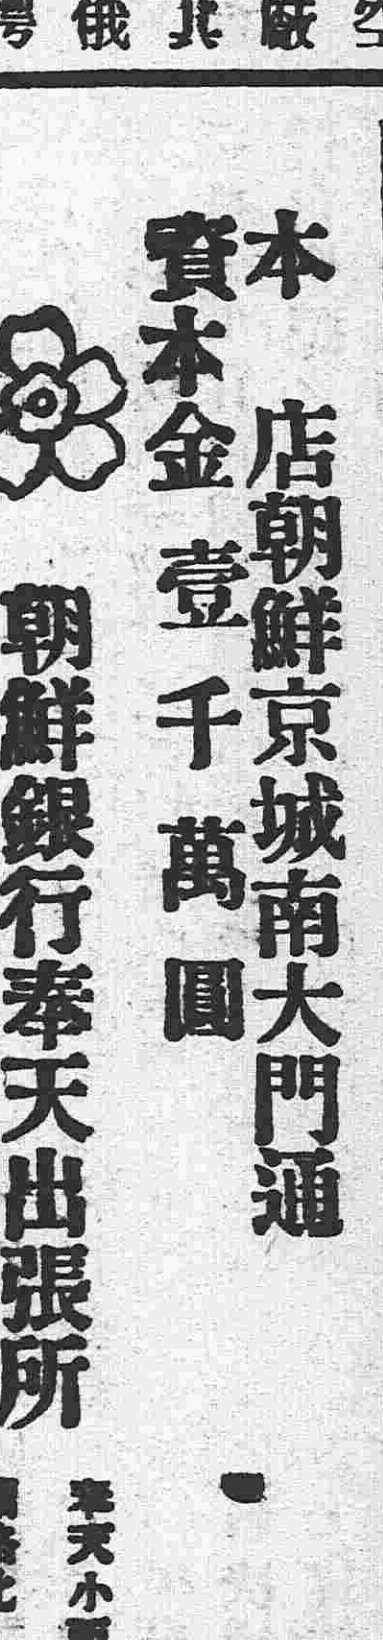 本店朝鮮京城南大門通
資本金壹千萬圓
朝鮮銀行奉天出張所
奉天小